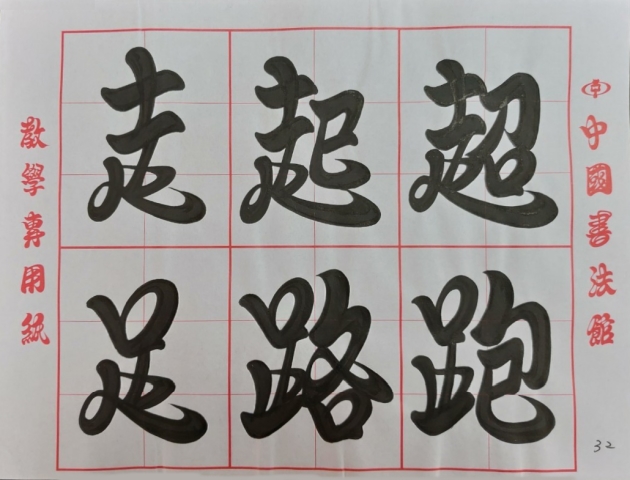 中國書法館
走起超
足路跑
教學專用紙
32